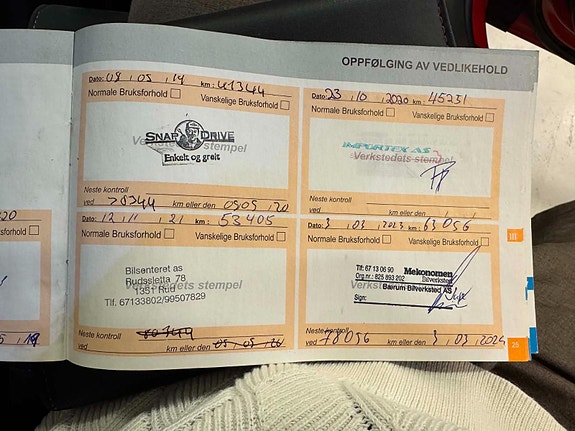 OPPFØLGING AV VEDLIKEHOLD
Dato: 08 , 05 , 19 km: 41344
Normale Bruksforhold Vanskelige Bruksforhold
SNAP DRIVE
Verkstedets stempel
Enkelt og greit
Neste kontroll
ved km eller den 0505 , 20
Dato: 23 , 10 , 2020 km: 45231
Normale Bruksforhold Vanskelige Bruksforhold
IMPORTEX AS
Verkstedets stempel
Neste kontroll
ved km eller den
Dato: 12 , 11 , 21 km: 53405
Normale Bruksforhold Vanskelige Bruksforhold
Bilsenteret as
Rudssletta 78
Verkstedets stempel
1351 Rud
Tlf. 67133802/99507829
Neste kontroll
ved km eller den
Dato: 3 , 03 , 2023 km: 63056
Normale Bruksforhold Vanskelige Bruksforhold
Tlf: 67 13 06 90 Mekonomen
Org.nr.: 825 893 202 Bilverksted
Verkstedets stempel
Bærum Bilverksted AS
Sign:
Neste kontroll
ved 78056 km eller den 3 , 03 , 2024
20
III
25